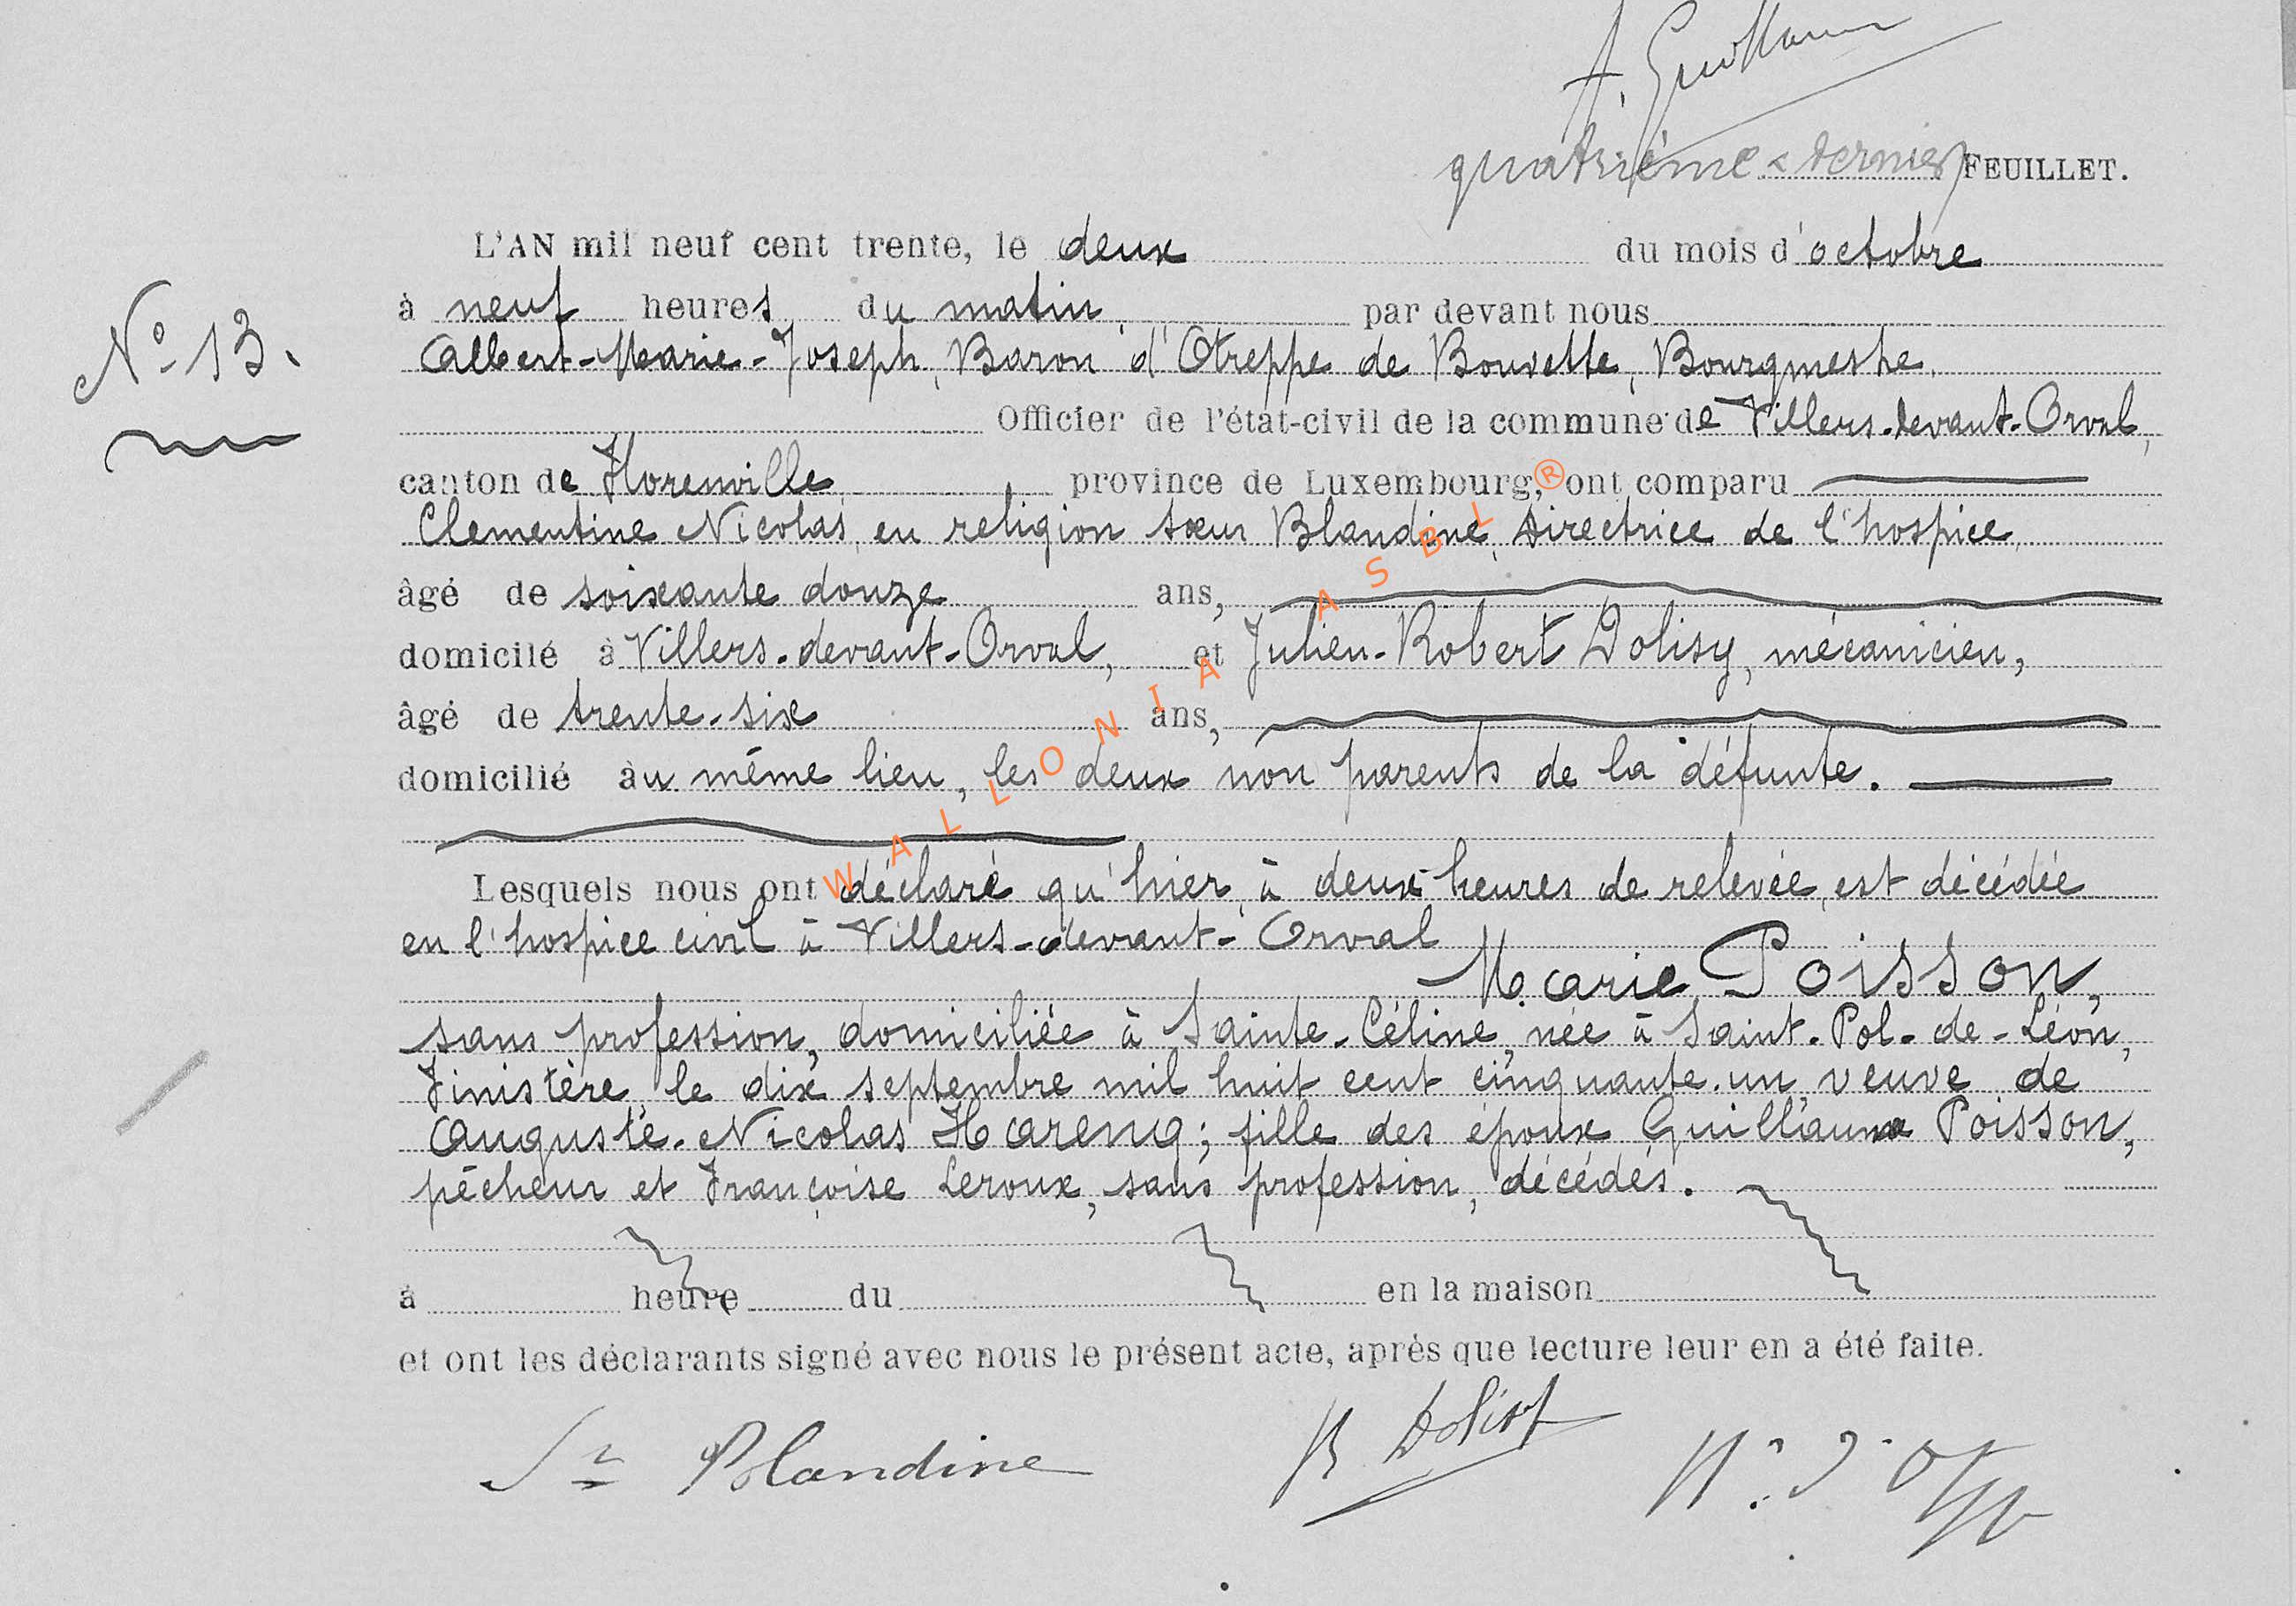 A. Guillaume
quatrième & dernier FEUILLET.
L'AN mil neuf cent trente, le deux du mois d'octobre
No 13.
à neuf heures du matin, par devant nous
Albert-Marie-Joseph, Baron d'Otreppe de Bouvette, Bourgmestre,
Officier de l'état-civil de la commune de Villers-devant-Orval,
canton de Florenville, province de Luxembourg, ont comparu
Clementine Nicolas, en religion sœur Blandine, Directrice de l'hospice,
âgé de soixante douze ans,
domicilé à Villers-devant-Orval, et Julien-Robert Dolisy, mécanicien,
âgé de trente-six ans,
domicilié au même lieu, les deux non parents de la défunte.
WALLONIA ASBL ®
Lesquels nous ont déclaré qu'hier, à deux heures de relevée, est décédée
en l'hospice civil à Villers-devant-Orval
Marie Poisson,
sans profession, domiciliée à Sainte-Céline, née à Saint-Pol-de-Léon,
Finistère, le dix septembre mil huit cent cinquante-un, veuve de
Auguste-Nicolas Hareng; fille des époux Guillaume Poisson,
pêcheur et Françoise Leroux, sans profession, décédés.
à heure du en la maison
et ont les déclarants signé avec nous le présent acte, après que lecture leur en a été faite.
Sr Blandine R Dolisy